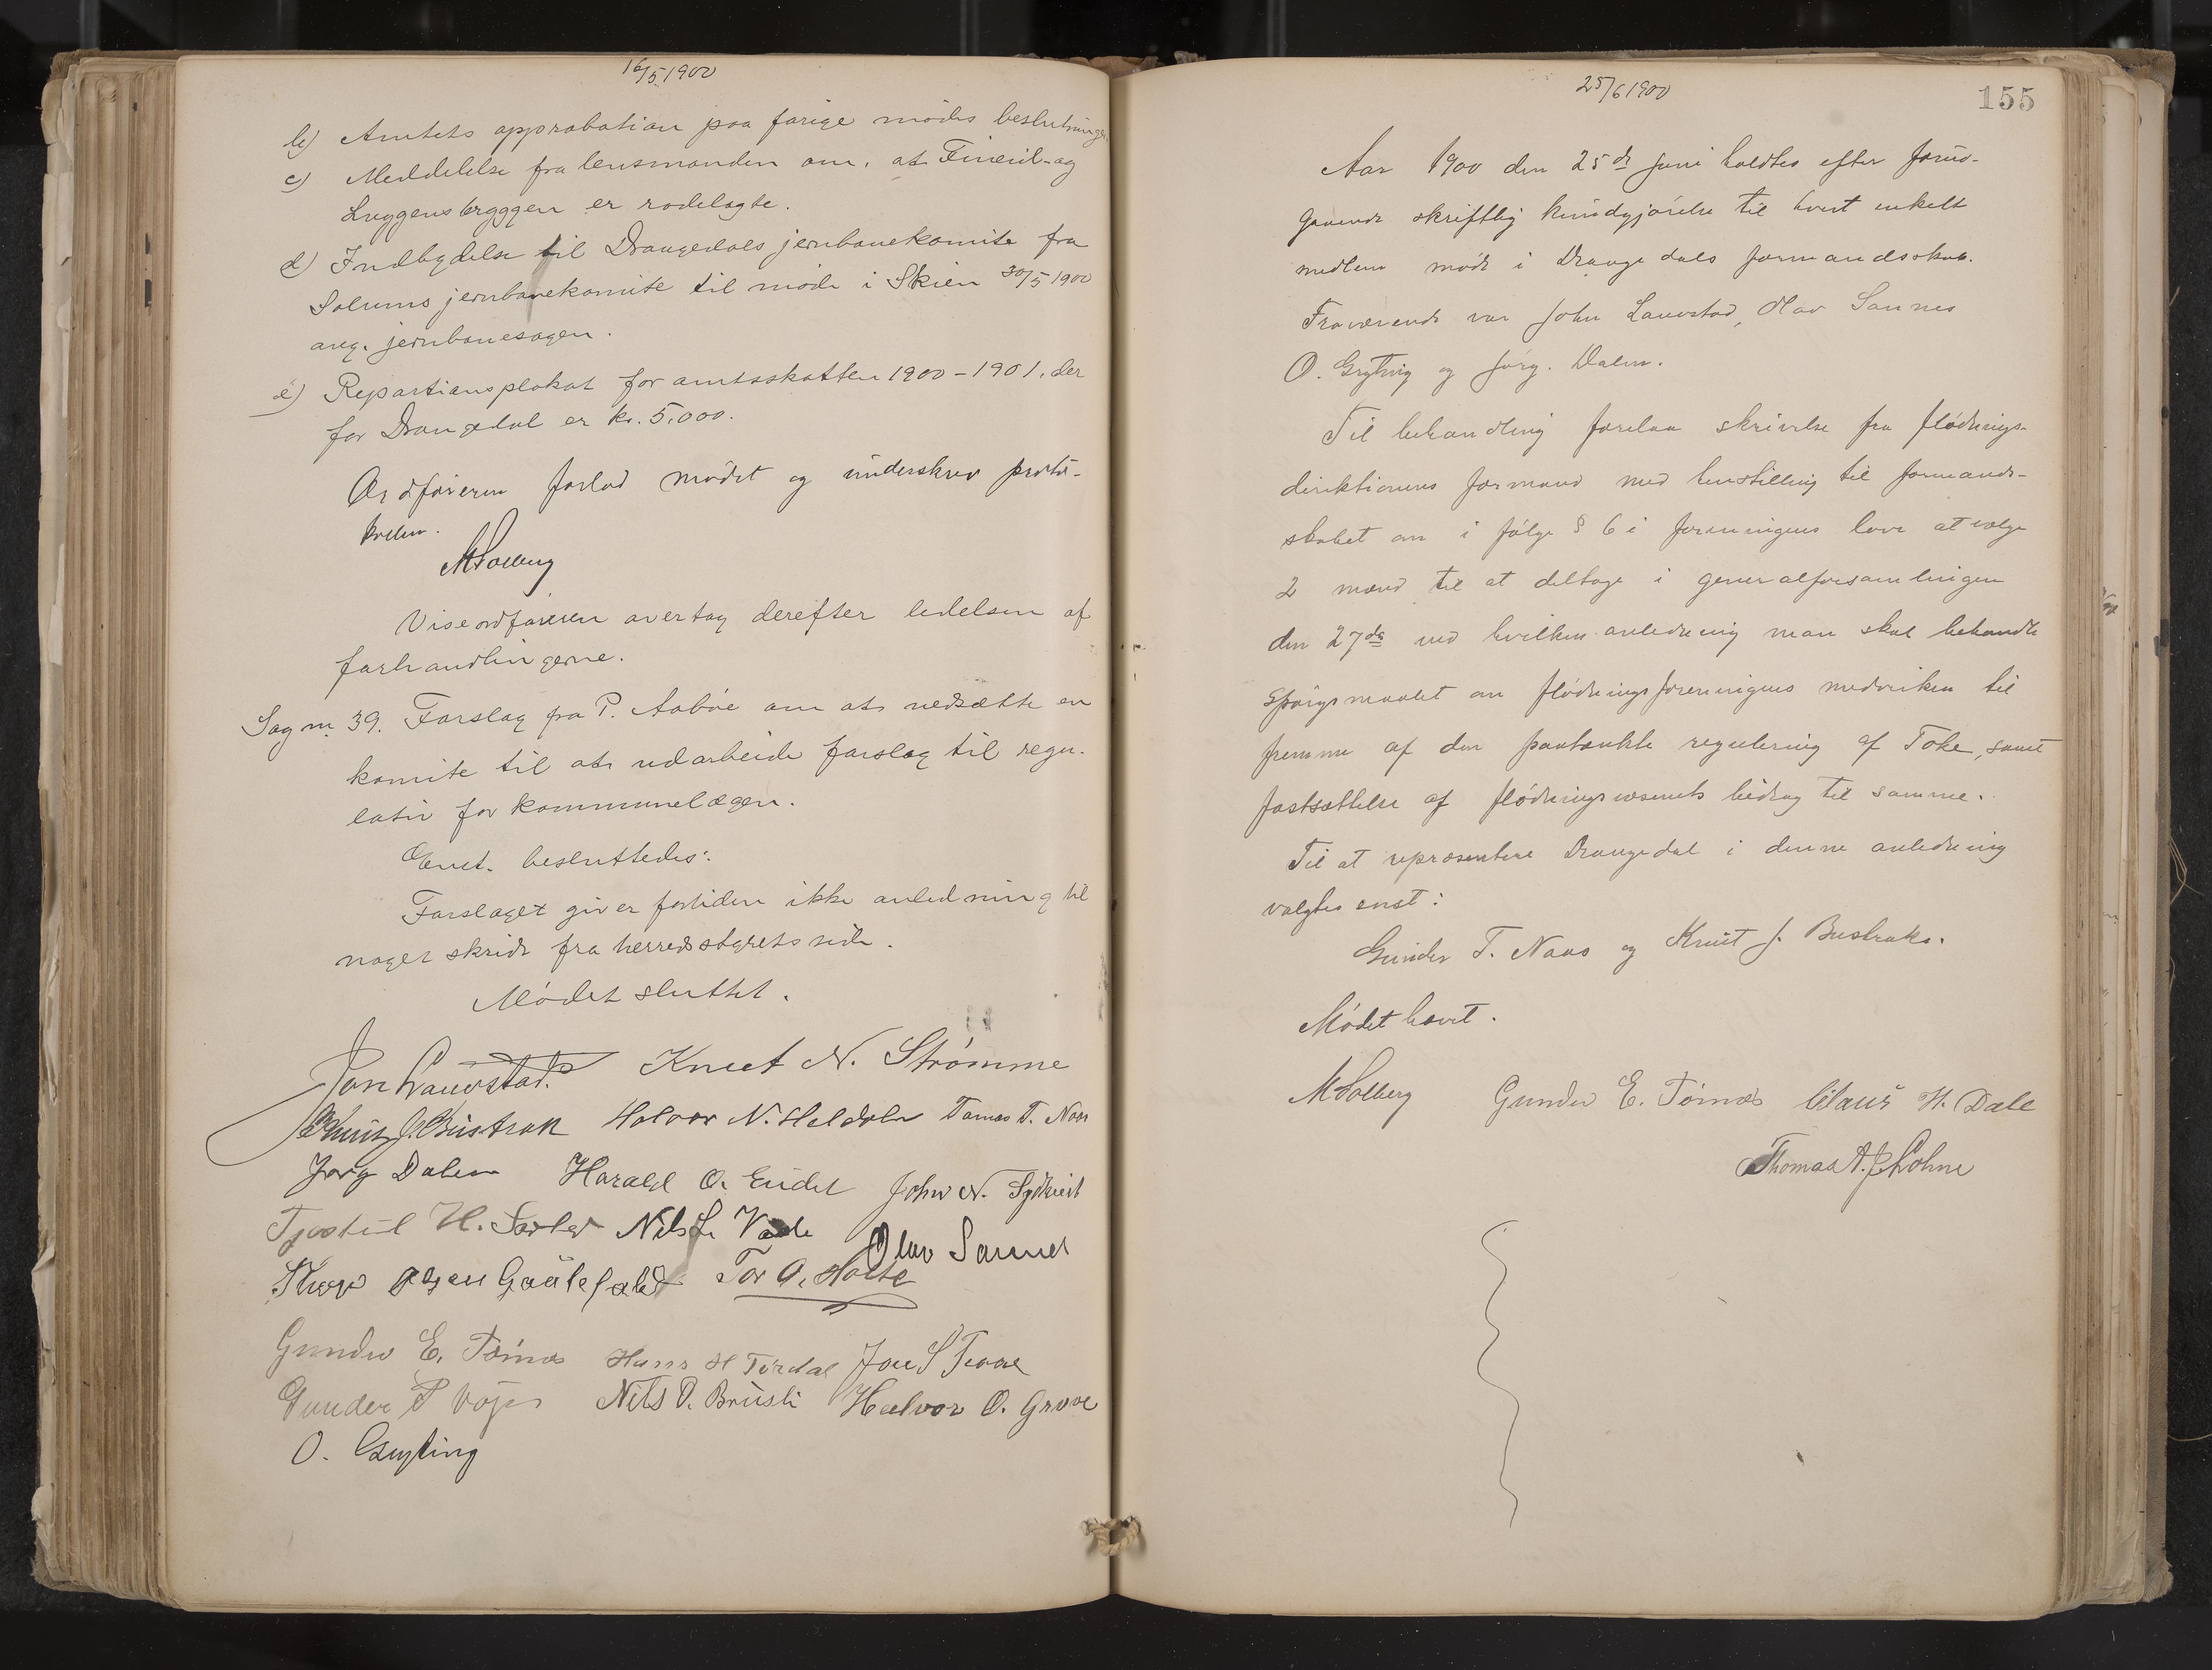 16/5 1900
b) Amtets approbation paa forige mødes beslutninger.
c) Meddelelse fra lensmanden om, at Fineid- og
Luggensbryggen er rodelagte.
d) Indbydelse til Drangedals jernbanekomite fra
Solums jernbanekomite til møde i Skien 30/5 1900
ang. jernbanesagen.
e) Repartionsplakat for amtsskatten 1900-1901, der
for Drangedal er kr. 5.000.
Ordføreren forlod mødet og underskrev proto-
kollen.
MSolberg
Viseordføreren overtog derefter ledelsen af
forhandlingerne.
Sag nr. 39. Forslag fra P. Aabøe om at nedsætte en
komite til at udarbeide forslag til regu-
lativ for kommunelægen.
Enst. besluttedes:
Forslaget giver fortiden ikke anledning til
noget skridt fra herredsstyrets side.
Mødet sluttet.
Jon Lauvstad. Knut N. Strømme
Knut J. Bustrak Halvor N. Heldøla Tomas T. Naas
Jørg Dalen Harald O. Eidet John N.
Tjostul H. Nils L. Olav Sannes
Olsen Gautefald Tor O. Holte
Gunder E. Tørnes Hans H Tørdal Jon S
Gunder P Nils O. Brusli Halvor O. Grove
O. Gryting
25/6 1900
155
Aar 1900 den 25de juni holdtes efter forud-
gaaende skriftlig kundgjørelse til hvert enkelt
medlem møde i Drangedals formandsskab.
Fraværende var John Lauvstad, Olav Sannes
O. Gryting og Jørg. Dalen.
Til behandling forelaa skrivelse fra flødnings-
direktionens formand med henstilling til formand-
skabet om i følge § 6 i foreningens love at vælge
2 mænd til at deltage i generalforsamlingen
den 27de ved hvilken anledning man skal behandle
spørgsmaalet om flødningsforeningens medvirken til
fremme af den paatænkte regulering af Toke, samt
fastsættelse af flødningsvæsenets bidrag til samme.
Til at repræsentere Drangedal i denne anledning
valgtes enst:
Gunder T. Naas og Knut J. Bustraka.
Mødet hævet.
MSolberg Gunder E. Tørnes Claus H. Dale
Thomas A. Lohne